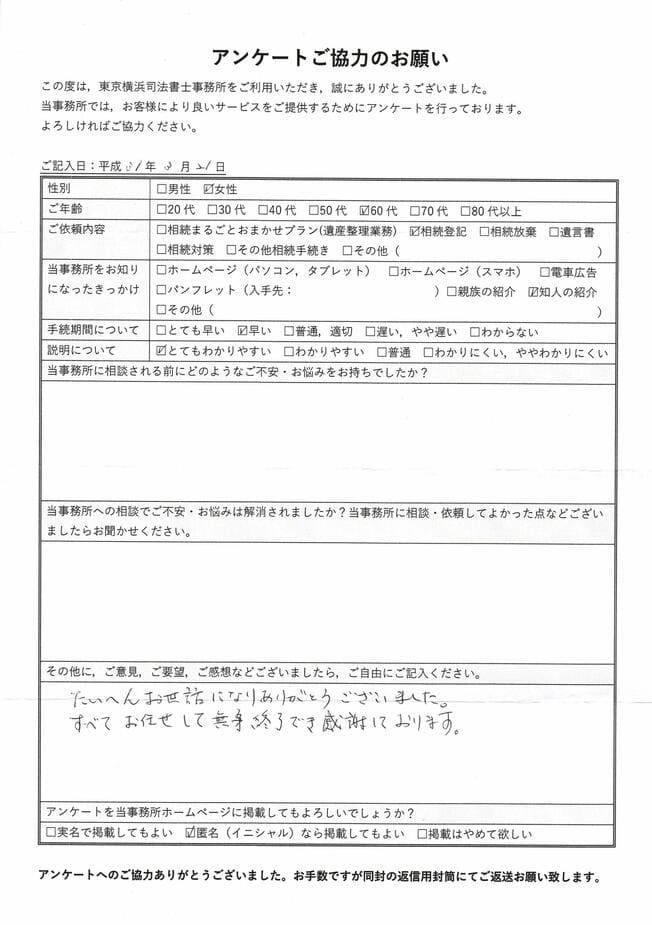 アンケートご協力のお願い
この度は，東京横浜司法書士事務所をご利用いただき，誠にありがとうございました。
当事務所では，お客様により良いサービスをご提供するためにアンケートを行っております。
よろしければご協力ください。
ご記入日：平成 31年 3月 21日
性別 □男性 ☑女性
ご年齢 □20代 □30代 □40代 □50代 ☑60代 □70代 □80代以上
ご依頼内容 □相続まるごとおまかせプラン(遺産整理業務) ☑相続登記 □相続放棄 □遺言書
□相続対策 □その他相続手続き □その他（ ）
当事務所をお知り □ホームページ（パソコン，タブレット） □ホームページ（スマホ） □電車広告
になったきっかけ □パンフレット（入手先： ）□親族の紹介 ☑知人の紹介
□その他（ ）
手続期間について □とても早い ☑早い □普通，適切 □遅い，やや遅い □わからない
説明について ☑とてもわかりやすい □わかりやすい □普通 □わかりにくい，ややわかりにくい
当事務所に相談される前にどのようなご不安・お悩みをお持ちでしたか？
当事務所への相談でご不安・お悩みは解消されましたか？当事務所に相談・依頼してよかった点などござい
ましたらお聞かせください。
その他に，ご意見，ご要望，ご感想などございましたら，ご自由にご記入ください。
たいへんお世話になりありがとうございました。
すべてお任せして無事終了でき感謝しております。
アンケートを当事務所ホームページに掲載してもよろしいでしょうか？
□実名で掲載してもよい ☑匿名（イニシャル）なら掲載してもよい □掲載はやめて欲しい
アンケートへのご協力ありがとうございました。お手数ですが同封の返信用封筒にてご返送お願い致します。